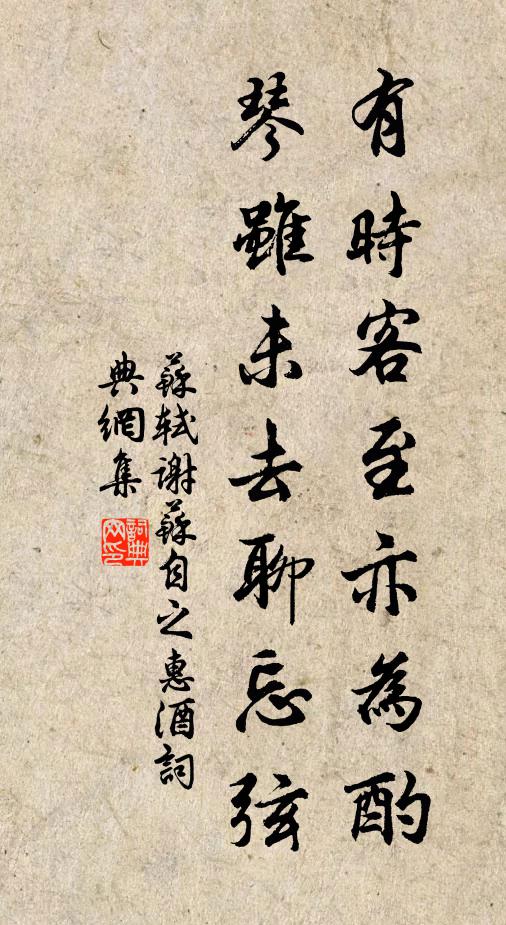 有時客至亦為酌
琴雖未去聊忘弦
蘇軾謝蘇自之惠酒詞
典網集
詞典
网印